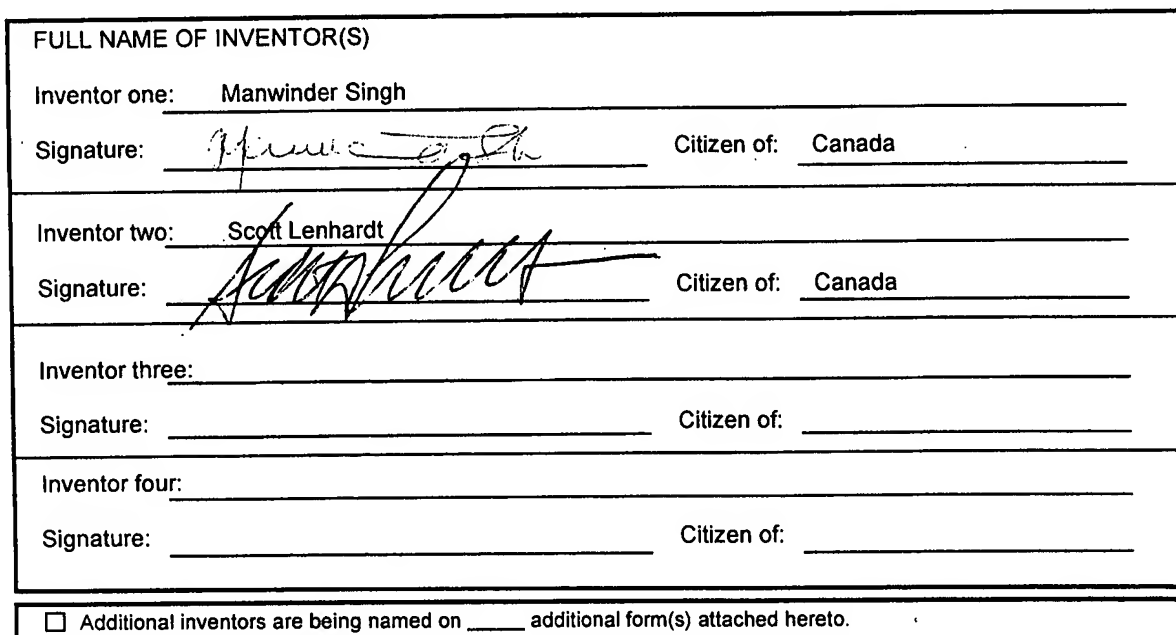 FULL NAME OF INVENTOR(S)
Inventor one: Manwinder Singh
Signature: Citizen of: Canada
Inventor two: Scott Lenhardt
Signature: Citizen of: Canada
Inventor three:
Signature: Citizen of:
Inventor four:
Signature: Citizen of:
☐ Additional inventors are being named on _____ additional form(s) attached hereto.